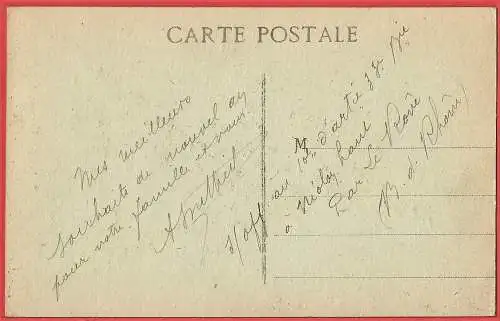 CARTE POSTALE
Mes meilleurs
souhaits de nouvel an
pour votre famille et vous.
M
S/off au 10e d'artie 37e Bie
à Niolon haut
Par Le Rove
(B. d. Rhône)